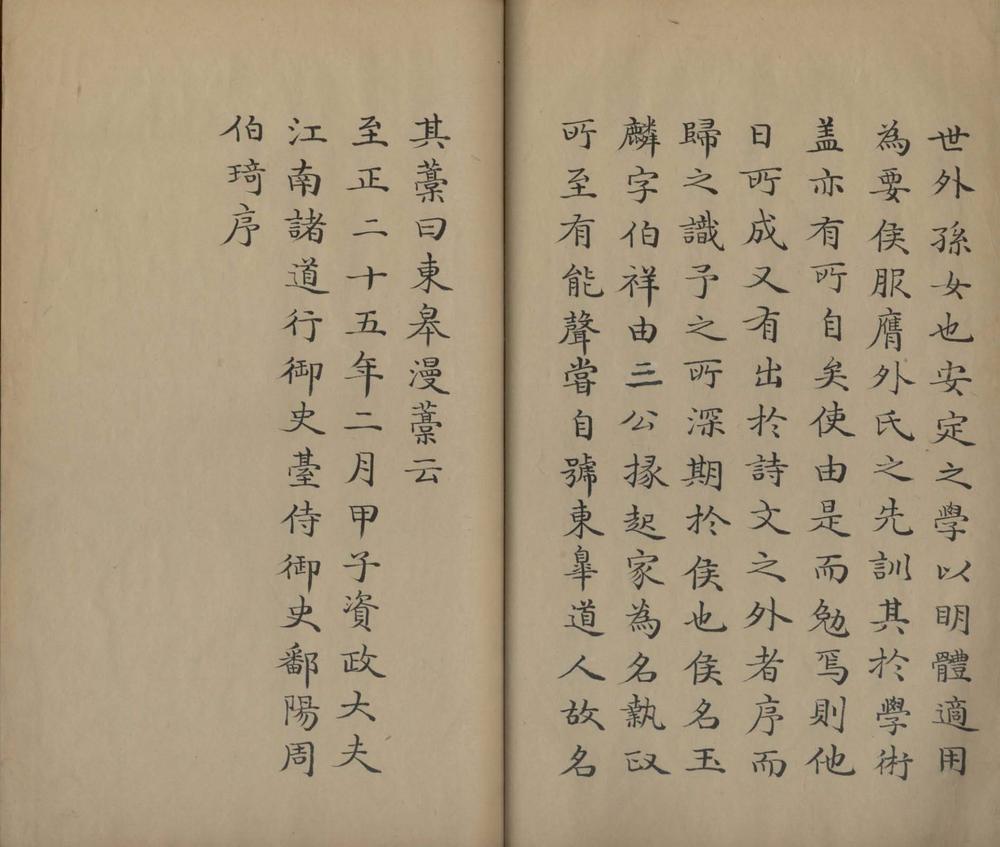 世外孫女也安定之學以明體適用
為要侯服膺外氏之先訓其於學術
盖亦有所自矣使由是而勉焉則他
日所成又有出於詩文之外者序而
歸之識予之所深期於侯也侯名玉
麟字伯祥由三公掾起家為名執政
所至有能聲嘗自號東臯道人故名
其藁曰東皋漫藁云
至正二十五年二月甲子資政大夫
江南諸道行御史臺侍御史鄱陽周
伯琦序